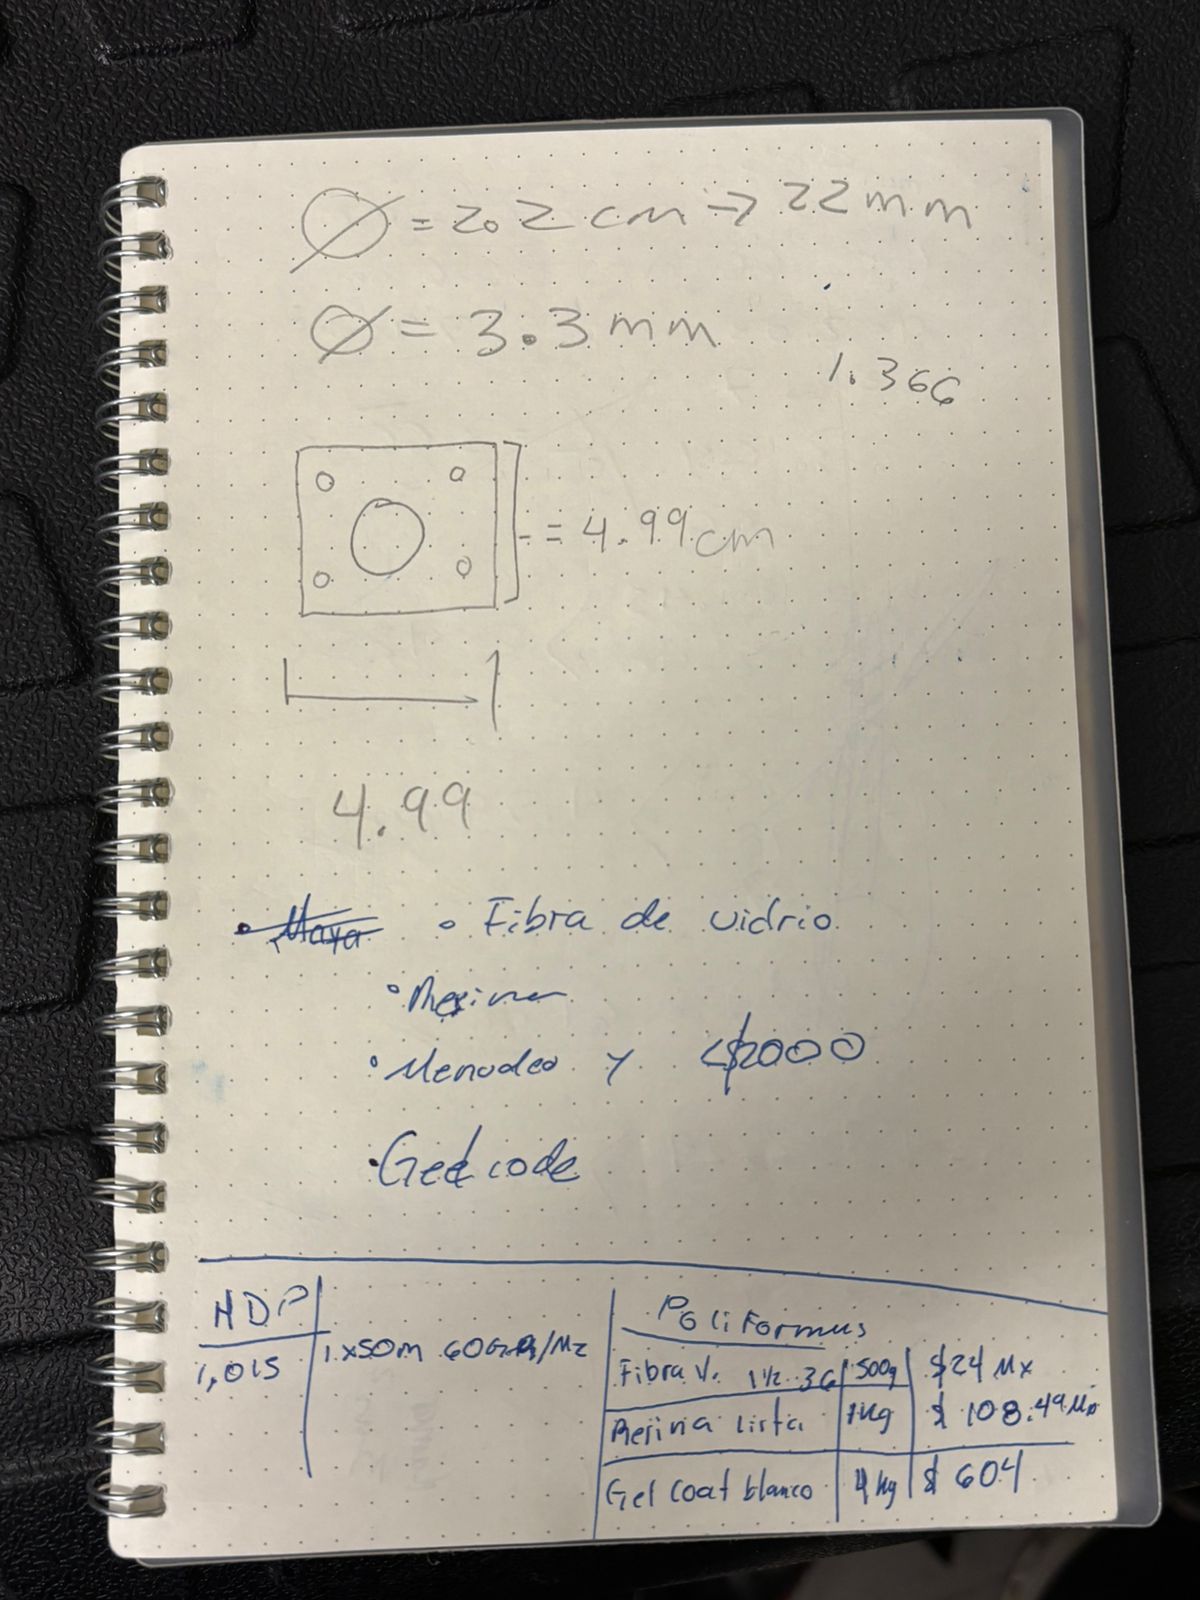 Ø = 2.2 cm → 22 mm
Ø = 3.3 mm
1.366
= 4.99 cm
4.99
• Maya • Fibra de vidrio
• Resina
• Menudeo y <$2000
• Geel code
HDP
1,015
1 x 50m 60GRs/M2
Poliformus
Fibra V. 1 1/2 36 500g $24 Mx
Resina lista 1 Kg $ 108.49 Mx
Gel Coat blanco 4 kg $ 604